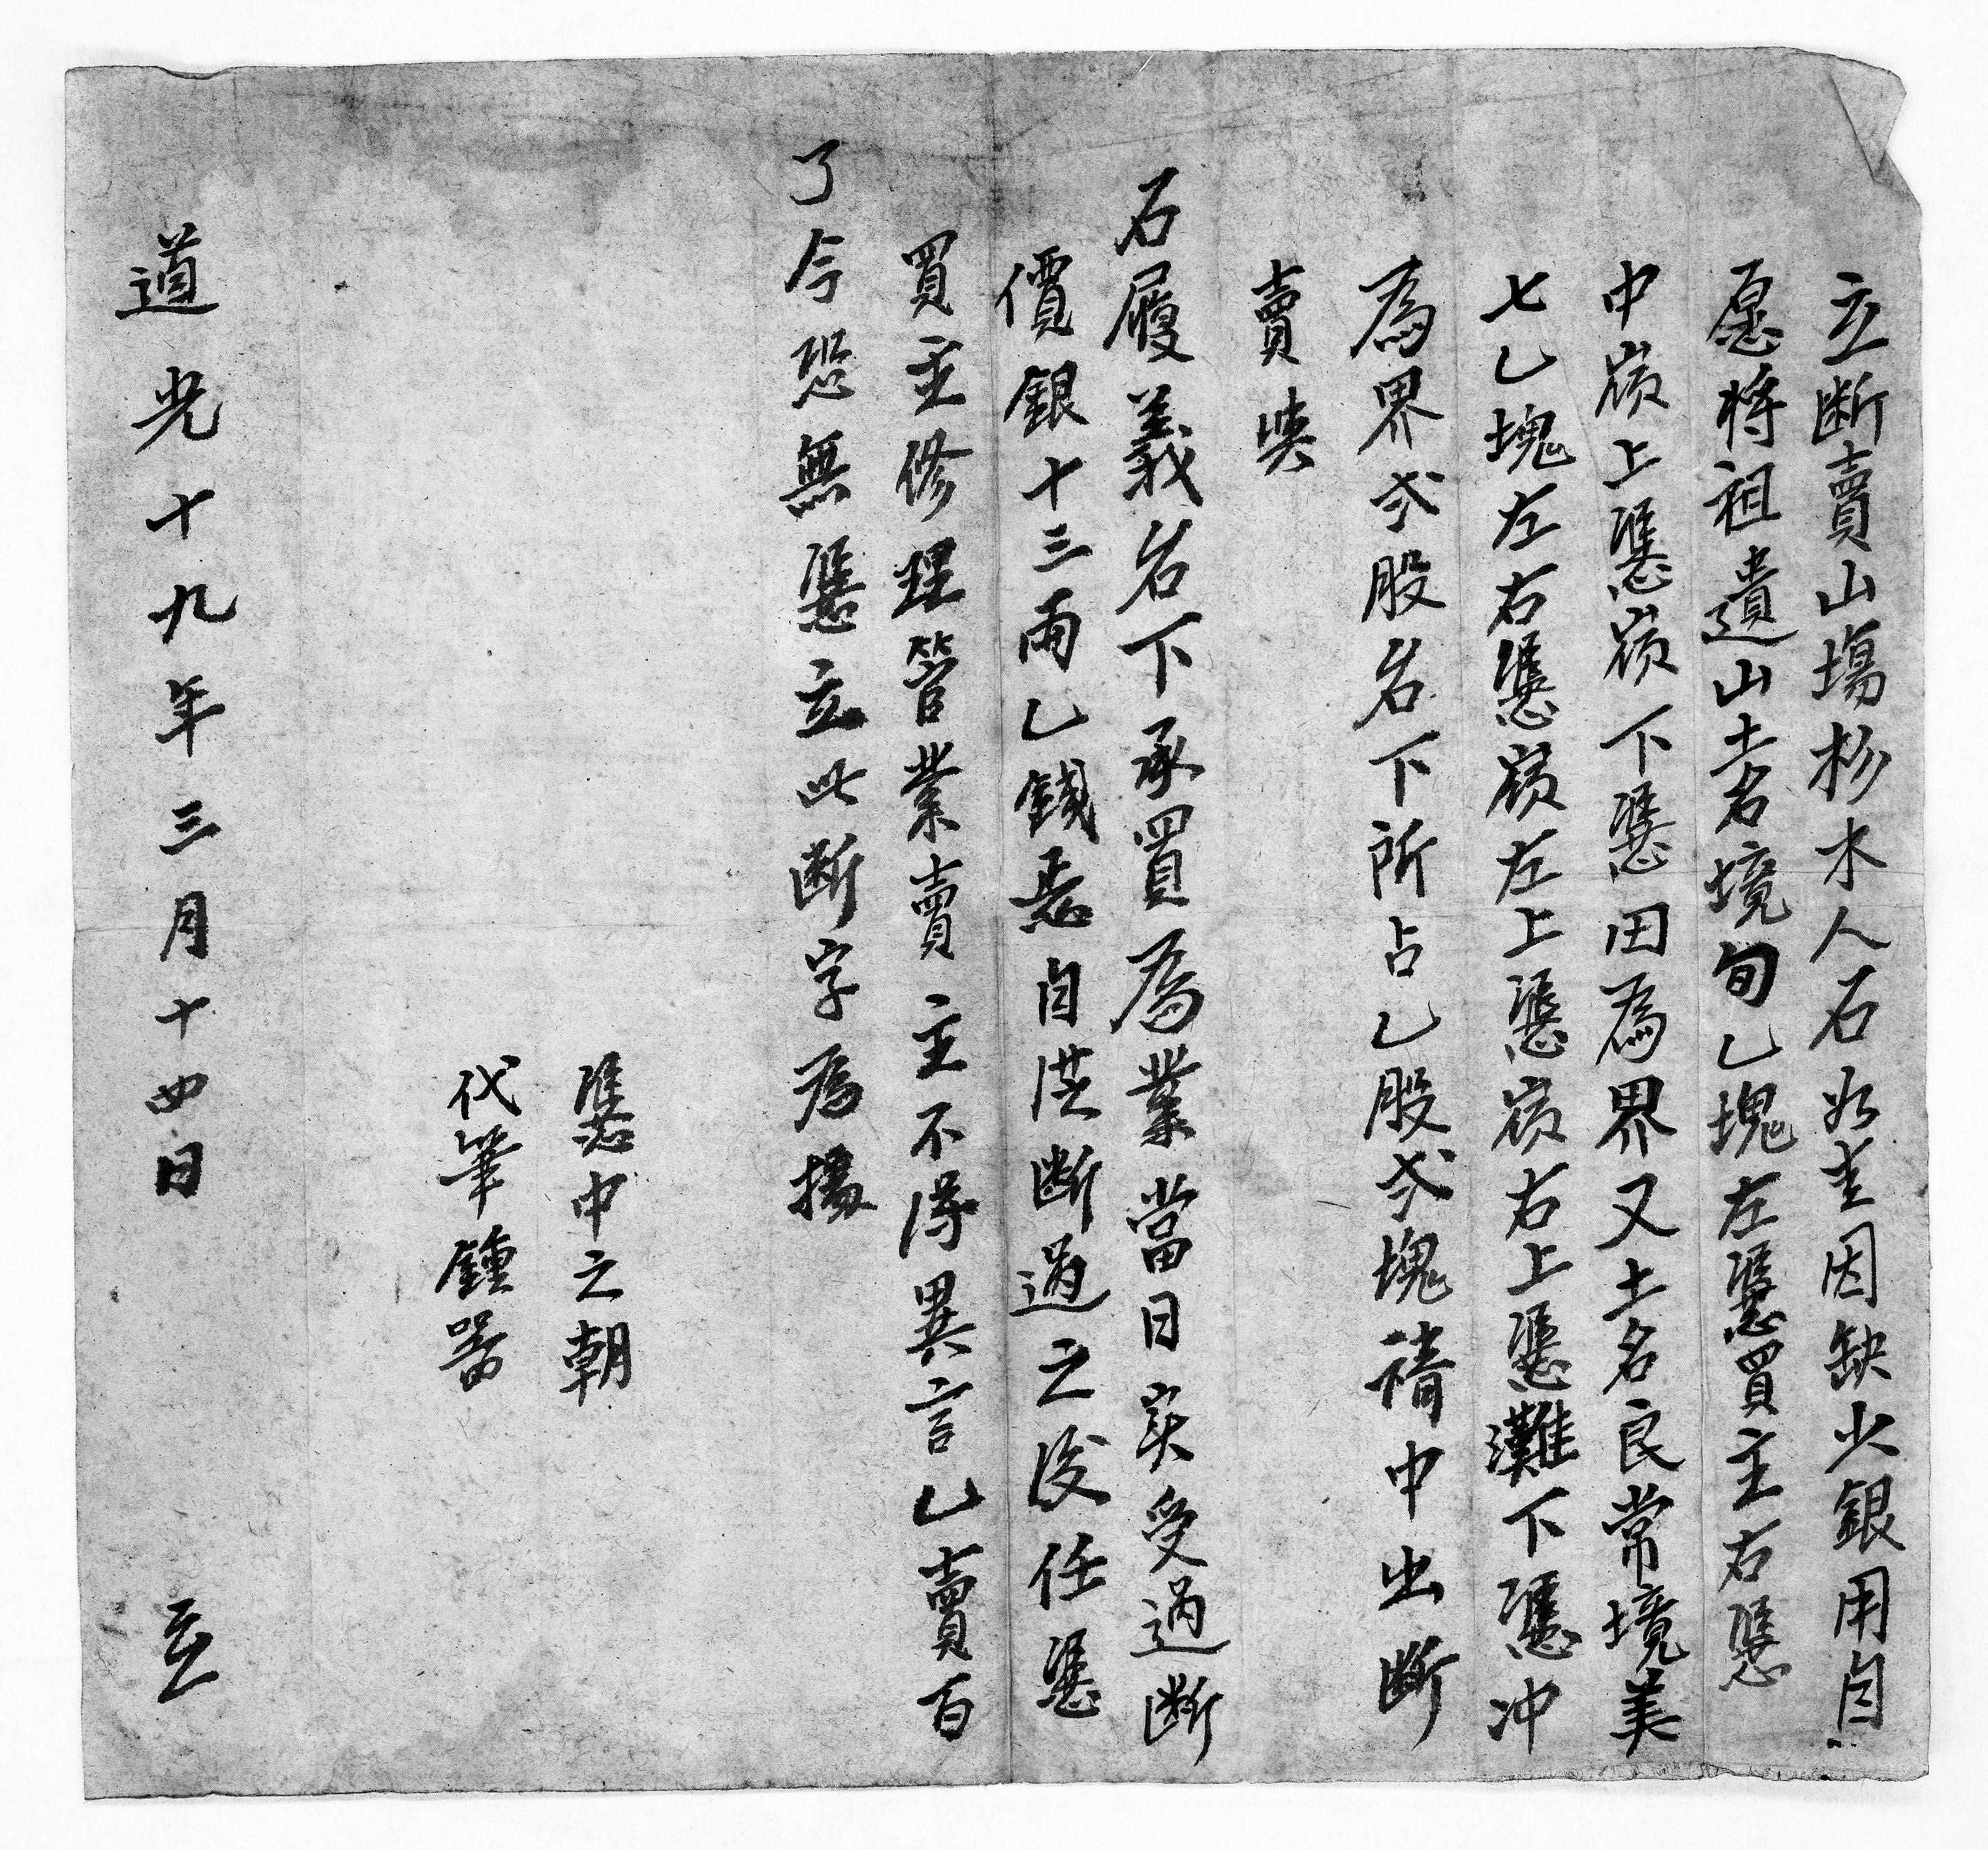 立断賣山塲杉木人石如圭因缺少銀用自
愿將祖遺山土名境旬乙塊左憑買主右憑
中嶺上憑嶺下憑田為界又土名良常境美
七乙塊左右憑嶺左上憑嶺右上憑灘下憑冲
為界弍股名下所占乙股弍塊請中出断
賣與
石履義名下承買為業當日实受過断
價銀十三兩乙錢恁自洪断過之後任憑
買主修理管業賣主不得異言乙賣百
了今恐無憑立此断字為據
憑中之朝
代筆鍾器
道光十九年三月十四日 立